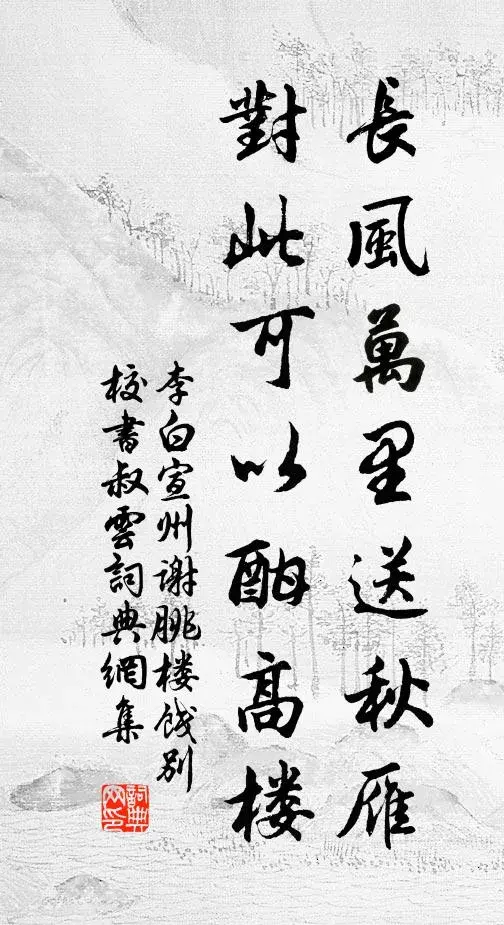 長風萬里送秋雁
對此可以酣高楼
李白宣州谢脁楼饯别
校書叔雲詞典網集
詞典网印